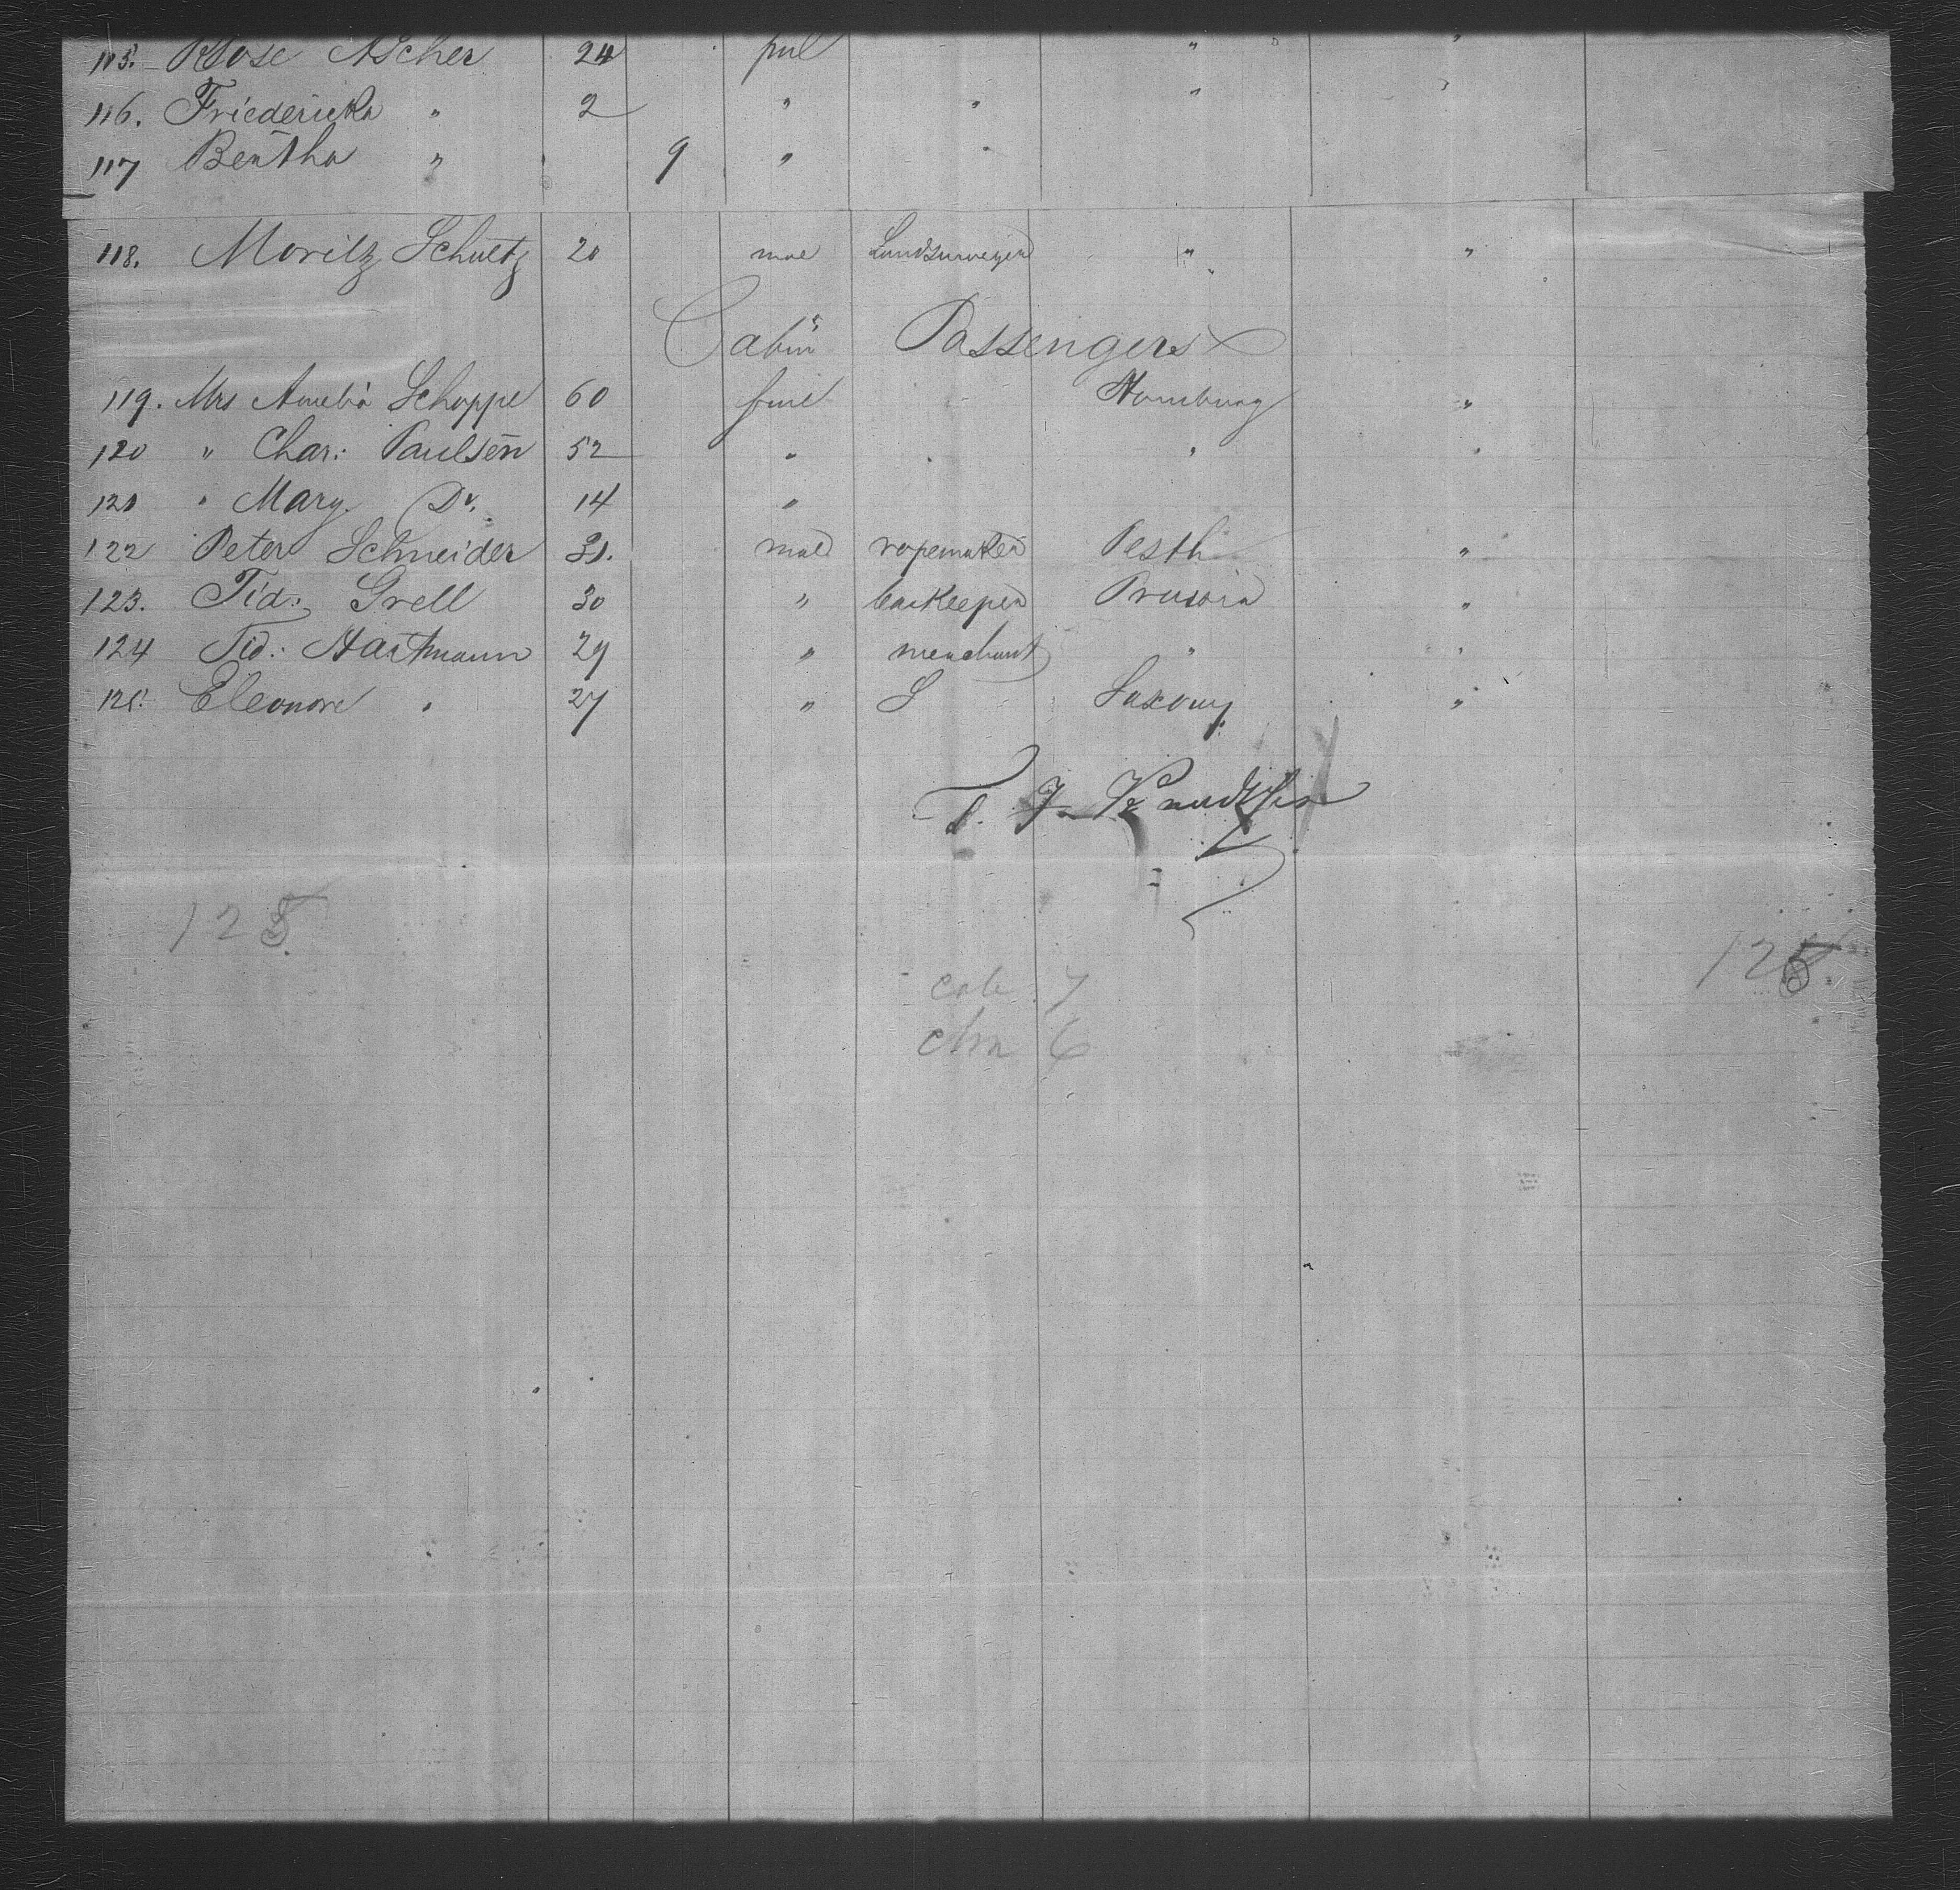 115. Rose Ascher 24 fml " "
116. Friedericka " 2 " " " "
117 Bertha " 9 " "
118. Moritz Schultz 20 male Landsurveyer " "
Cabin Passengers
119. Mrs Amelia Schoppe 60 fml Hamburg "
120 " Char: Paulsen 52 " " " "
121 " Mary Do. 14 "
122 Peter Schneider 31. male ropemaker Pesth "
123. Fid: Grell 30 " barkeeper Prussia "
124 Fid: Hartmann 29 " merchant " "
125. Eleonore " 27 " Saxony "
125
cab 7
6